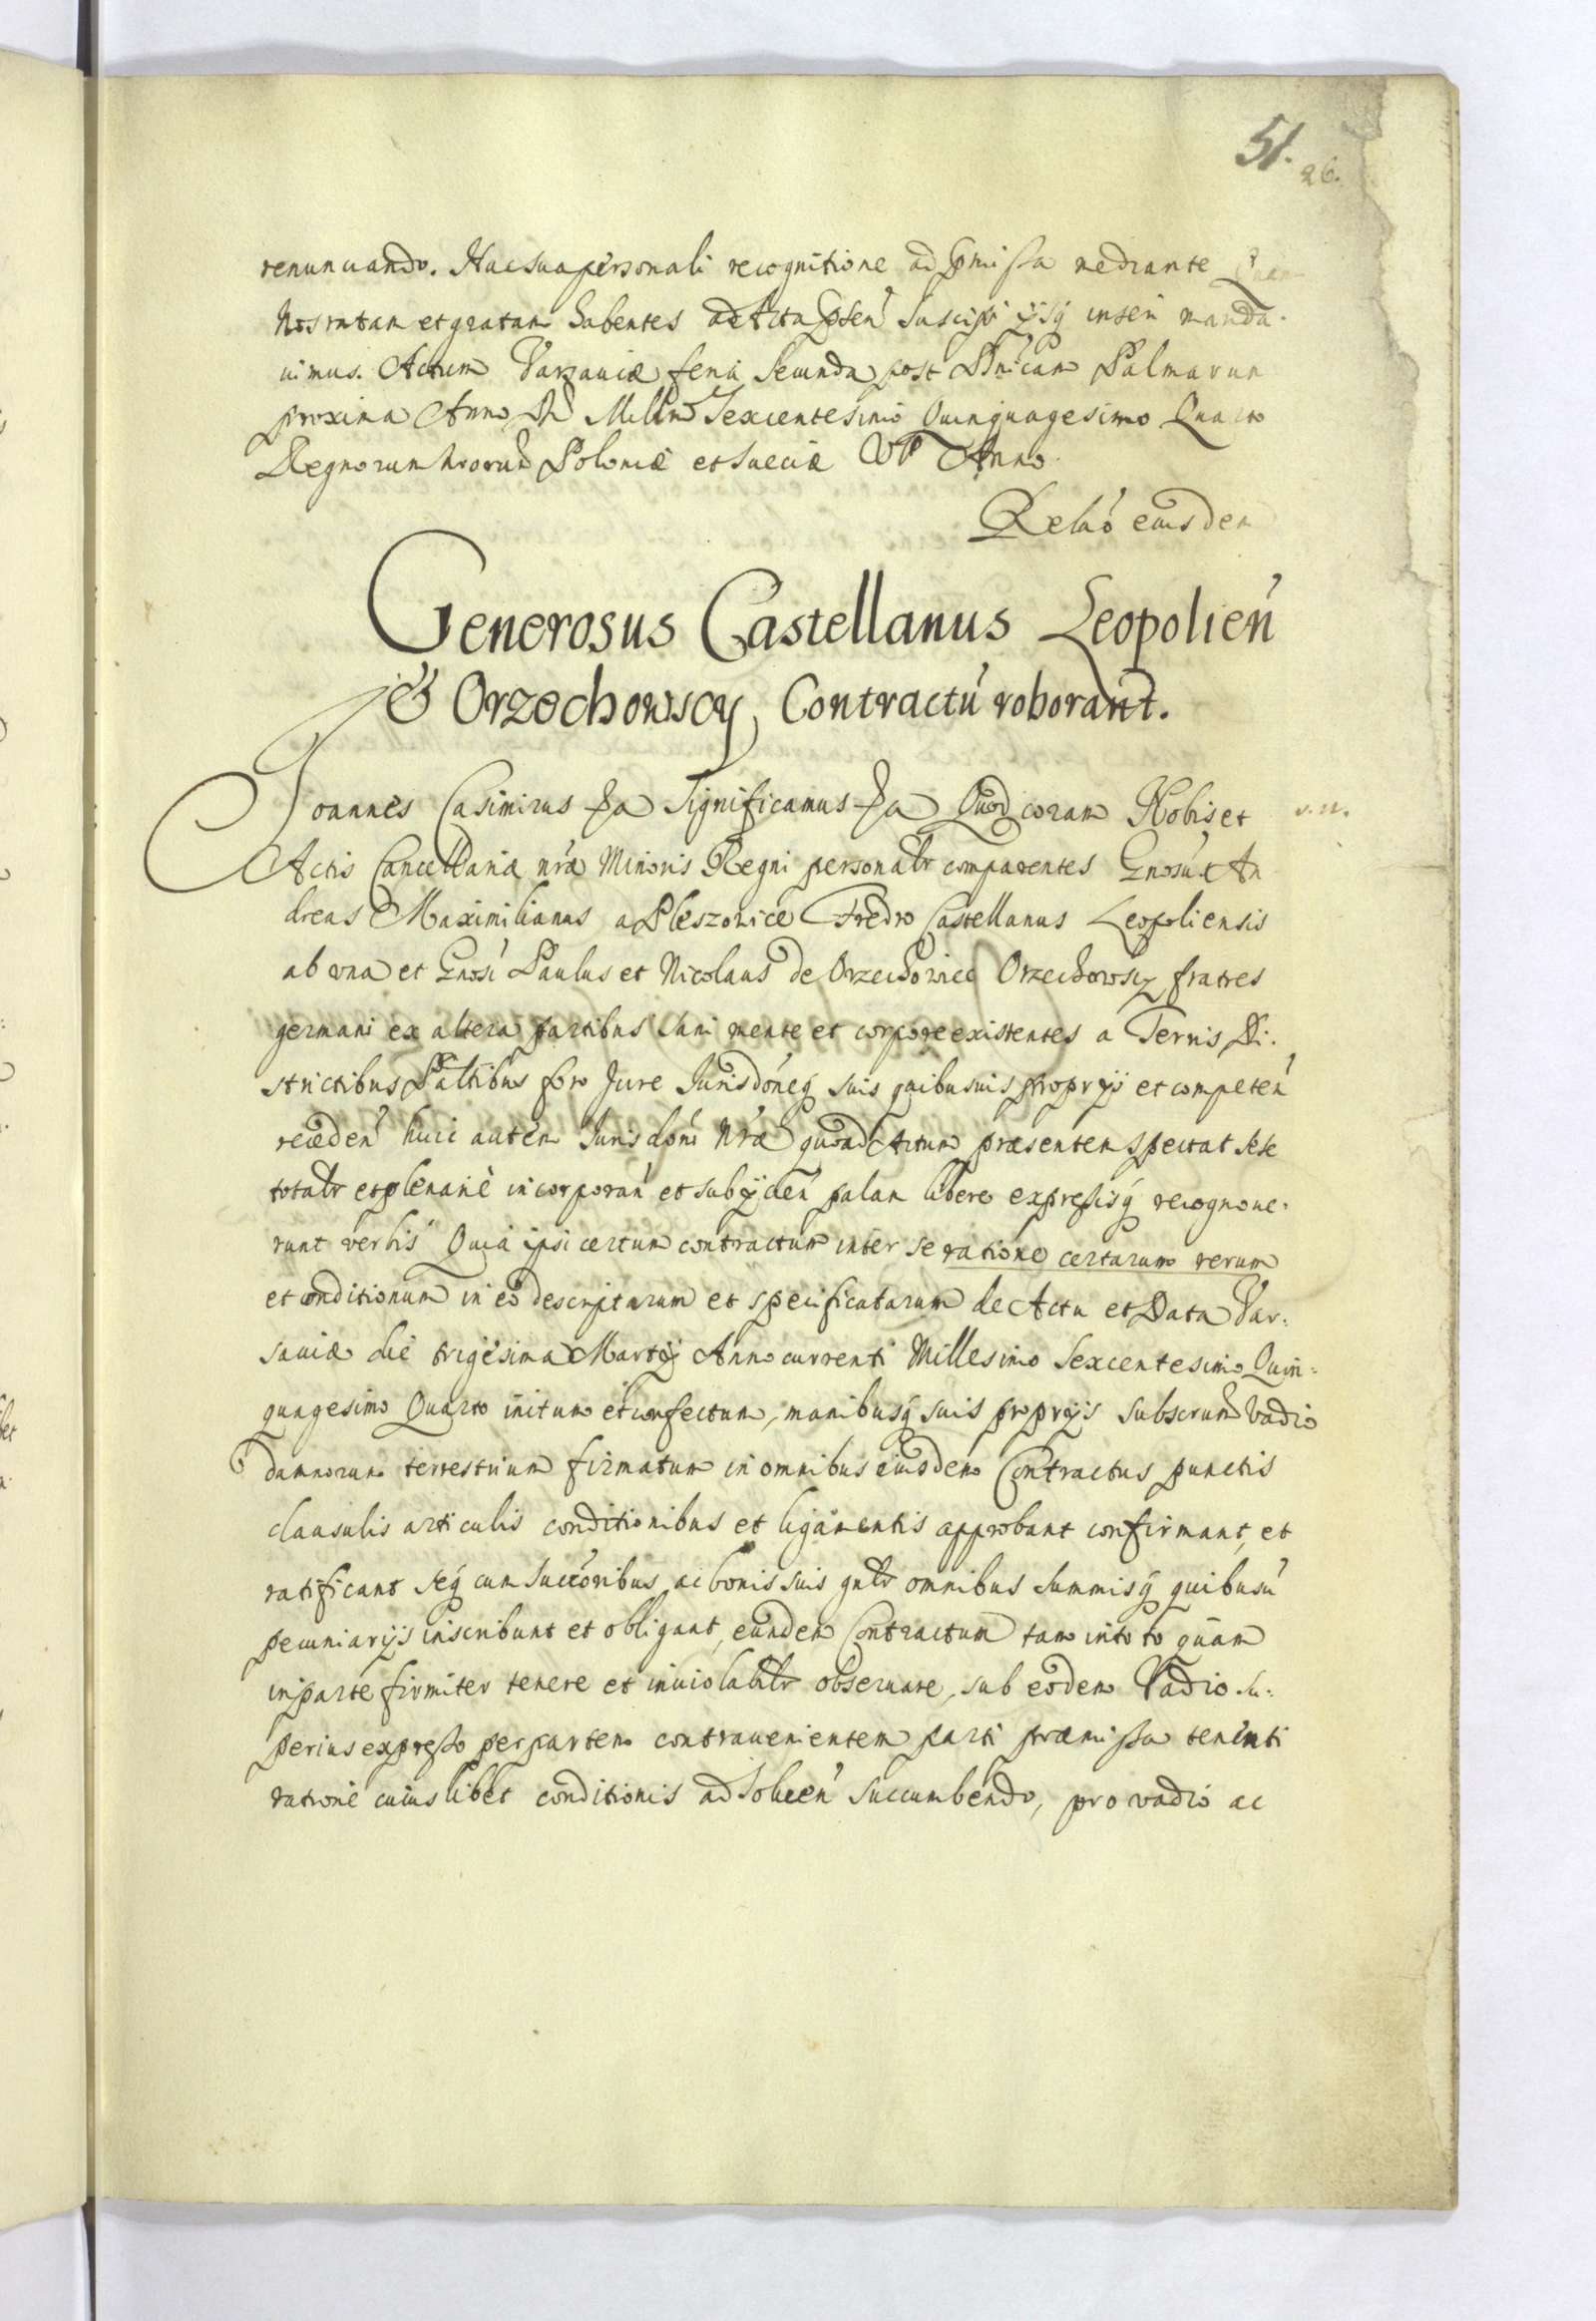 51.
26.
renunciando. Hac sua personali recognitione ad pmissa mediante
Nos ratam et gratam habentes ad Acta psen suscipi ijsq inseri manda-
uimus. Actum Varsauiæ feria secunda post Dnicam Palmarum
proxima Anno Dni Millmo Sexcentesimo Quinquagesimo Quarto
Regnorum nrorum Poloniæ et Sueciæ VI Anno.
Relao eiusdem
Generosus Castellanus Leopolien
& Orzechowscy Contractu roborant.
Joannes Casimirus &a Significamus &a Quod coram Nobis et
s. n.
Actis Cancellariæ nræ Minoris Regni personalr comparentes Gnosus An
dreas Maximilianus a Pleszowice Fredro Castellanus Leopoliensis
ab vna et Gnosi Paulus et Nicolaus de Orzechowice Orzechowscy fratres
germani ex altera partibus sani mente et corpore existentes a Terris Di-
strictibus Paltibus foro Jure Jurisdoneq suis quibusuis proprijs et competen
receden huic autem Jurisdoni Nræ quoad Actum præsentem spectat sese
totalr et plenariè incorporan et subijcien palam libere expressisq recognoue-
runt verbis Quia ipsi certum contractum inter se ratione certarum rerum
et conditionum in eo descriptarum et specificatarum de Actu et Data Var-
sauiæ die trigesima Martij Anno currenti Millesimo Sexcentesimo Quin-
quagesimo Quarto initum et confectum, manibusq suis proprijs subscrum vadio
damnorum terrestrium firmatum in omnibus eiusdem Contractus punctis
clausulis articulis conditionibus et ligamentis approbant confirmant, et
ratificant seq cum succoribus ac bonis suis gnlr omnibus summisq quibusu
pecuniarijs inscribunt et obligant, eundem Contractum tam in toto quam
in parte firmiter tenere et inuiolablr obseruare, sub eodem Vadio su-
perius expresso per partem contrauenientem parti præmissa tenenti
ratione cuiuslibet conditionis ad soluen succumbendo, pro vadio ac